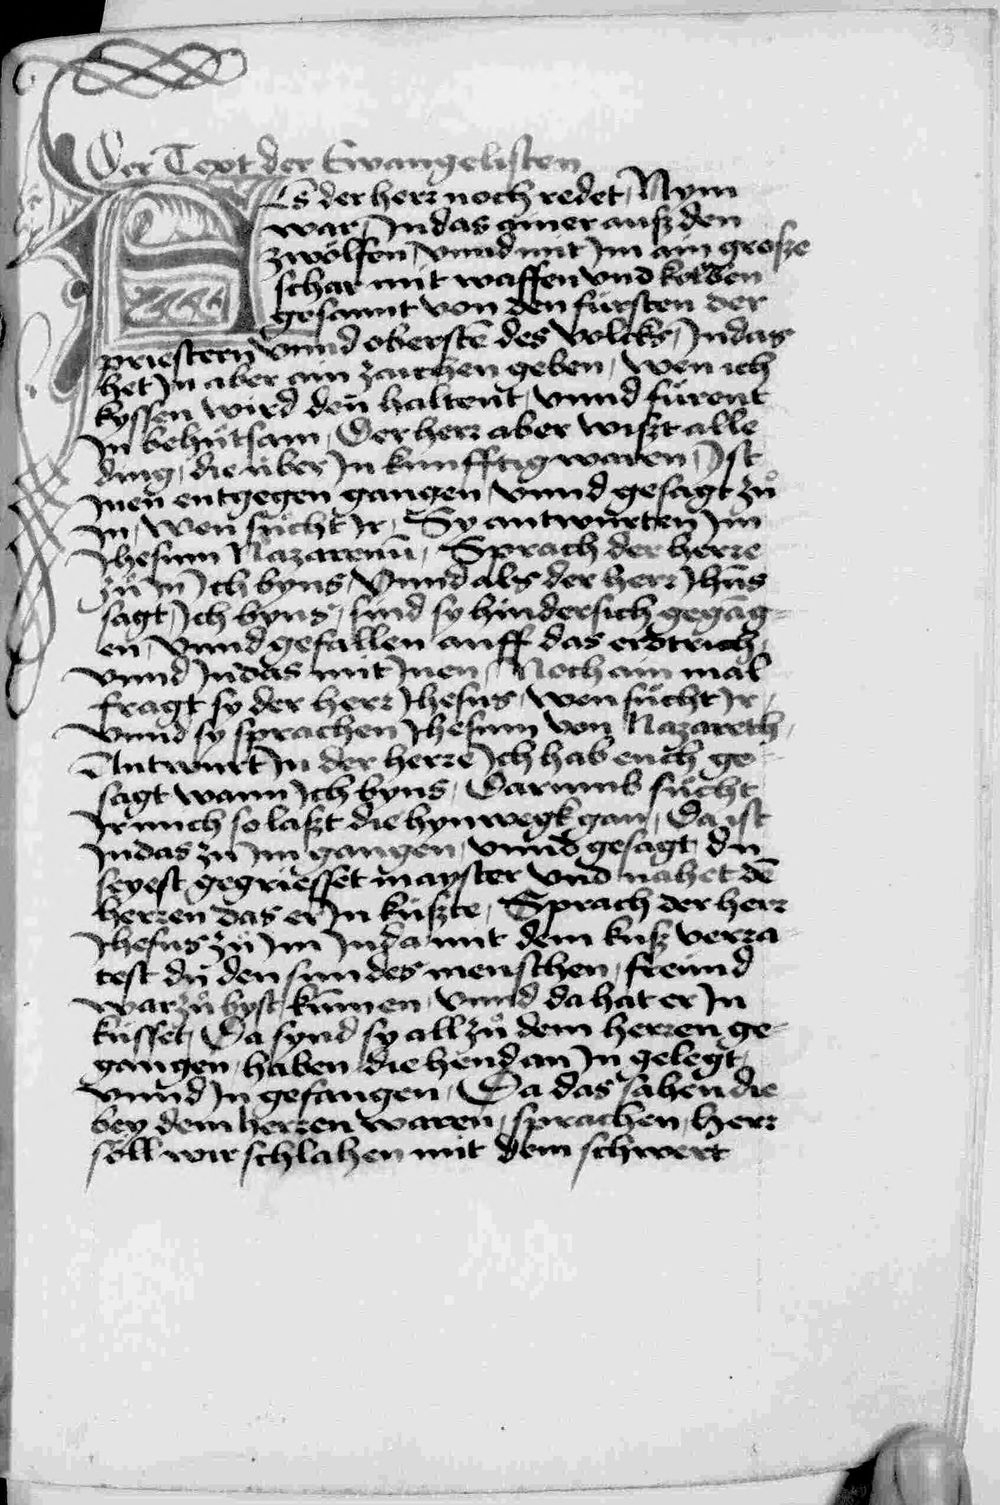 Der Text der Ewangelisten
Als der herr noch redet, Nym
war, Judas ainer ausz den
zwölfen, vnnd mit Jm ain grosze
schar mit waffen vnd kolben
gesannt von den fürsten der
priestern vnnd oberstē des volcks, Judas
het Jn aber ain zaichen geben, wen ich
kyssen wird den haltent, vnnd fürent
Jn behütsam, Der herr aber wiszt alle
ding, die über Jn kunfftig waren, Jst
Jnen entgegen gangen, vnnd gesagt zů
in, wen sücht Jr, Sy antwurten Jm
Jhesum Nazarenū, Sprach der herre
zů in Jch byns, Vnnd als der herr Jhūs
sagt, Jch byns, sind sy hindersich gegāg-
en, vnnd gefallen auff das erdtrich,
vnnd Judas mit Jnen, Noch ain mal
fragt sy der herr Jhesus, wen sücht Jr,
vnnd sy sprachen Jhesum von Nazareth,
Antwurt Jn der herre Jch hab euch ge-
sagt wann Jch byns, Darumb sücht
Jr mich so laszt die hynwegk gan, Da ist
Judas zu Jm gangen, vnnd gesagt du
seyest gegriesset mayster vnd nahet dē
herren das er Jn küszte, Sprach der herr
Jhesus zů Jm Juda mit dem kusz verra-
test du den sun des menschen, freünd
warzů byst kūmen, vnnd da hat er Jn
küsset, Da synd sy all zů dem herren ge-
gangen, haben die hend an Jn gelegt,
vnnd Jn gefangen, Da das sahen die
bey dem herren waren, sprachen, Herr
söll wir schlahen mit dem schwert